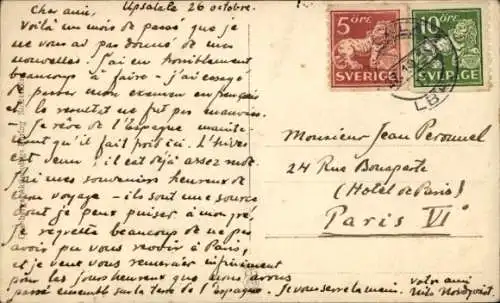 Cher ami, Upsala le 26 octobre.
Voilà un mois de passé que je
ne vous ai pas donné de mes
nouvelles. J'ai eu horriblement
beaucoup à faire - j'ai essayé
de passer mon examen en français
et le resultat ne fut pas mauvais.
- Je rêve de l'Espagne mainte-
nant qu'il fait froid ici. L'hiver
est venu; il est déjà assez
J'ai mes souvenirs heureux de
mon voyage - ils sont une source
dont je peux puiser à mon gré,
Je regrette beaucoup de ne pas
avoir pu vous revoir à Paris,
et je veux vous remercier infiniment
pour les jours heureux que nous avons
passé ensemble sur la terre de l'espagne. Je vous serre la main.
Votre ami
Nils
5 ÖRE
SVERIGE
10 ÖRE
SVERIGE
LBK
Monsieur Jean Peronnel
24 Rue Bonaparte
(Hotel de Paris)
Paris VI